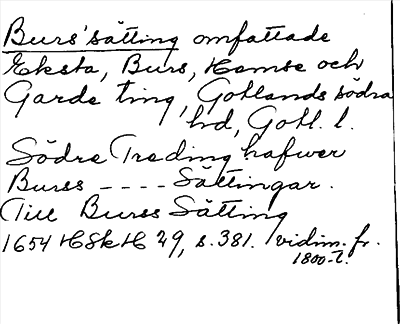 Burs' sätting omfattade
Eksta, Burs, Hemse och
Garde ting, Gotlands södra
hd, Gotl. l.
Södre Treding hafwer
Burss ---- Sättingar.
Till Burss Sätting
1654 HSkH 29, s. 381. vidim. fr.
1800-t.